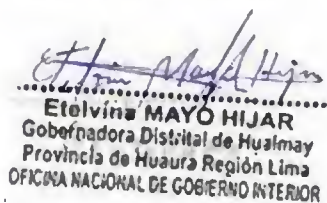 Etelvina Mayo Hijar
Etelvina MAYO HIJAR
Gobernadora Distrital de Hualmay
Provincia de Huaura Región Lima
OFICINA NACIONAL DE GOBIERNO INTERIOR